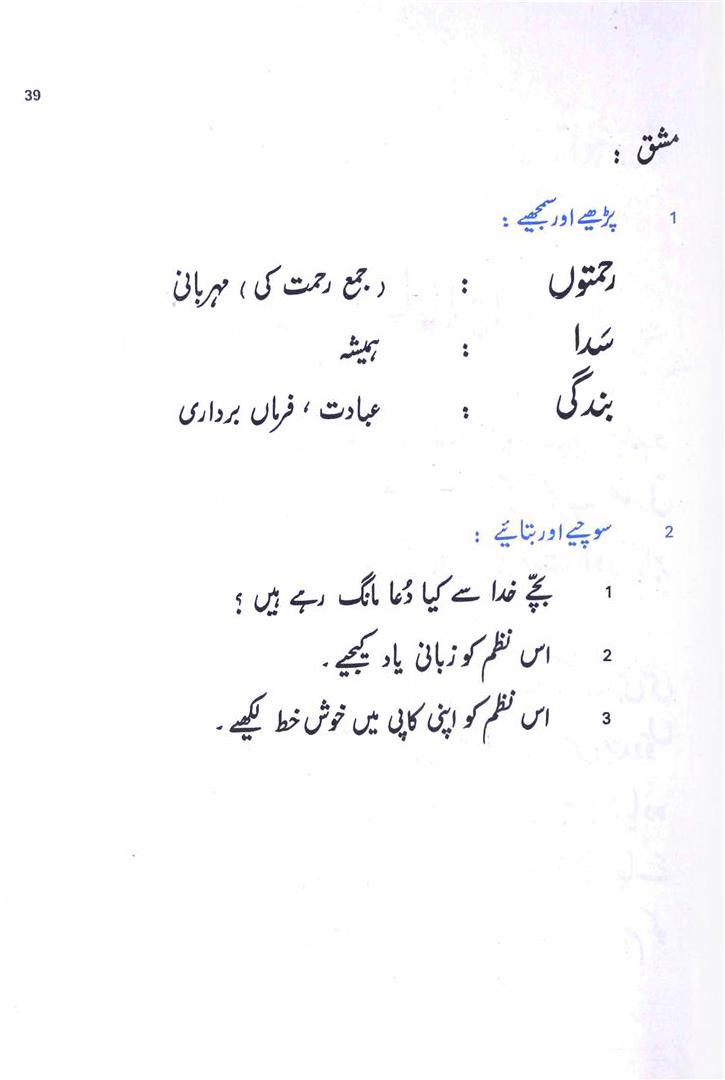 39
مشق :
1 پڑھیے اور سمجھیے :
رحمتوں : (جمع رحمت کی) مہربانی
سَدا : ہمیشہ
بندگی : عبادت ، فرماں برداری
2 سوچیے اور بتائیے :
1 بچّے خدا سے کیا دُعا مانگ رہے ہیں ؟
2 اس نظم کو زبانی یاد کیجیے ۔
3 اس نظم کو اپنی کاپی میں خوش خط لکھیے ۔